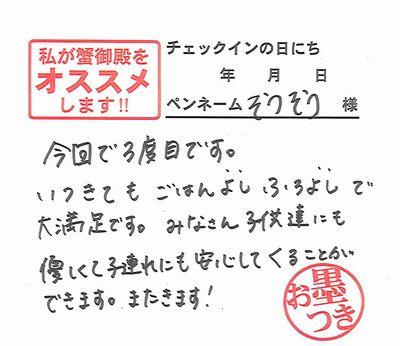 私が蟹御殿を
オススメ
します!!
チェックインの日にち
年 月 日
ペンネーム ぞうぞう 様
今回で3度目です。
いつきても ごはんよし ふろよしで
大満足です。みなさん子供達にも
優しくて子連れにも安心してくることが
できます。またきます!
お墨つき